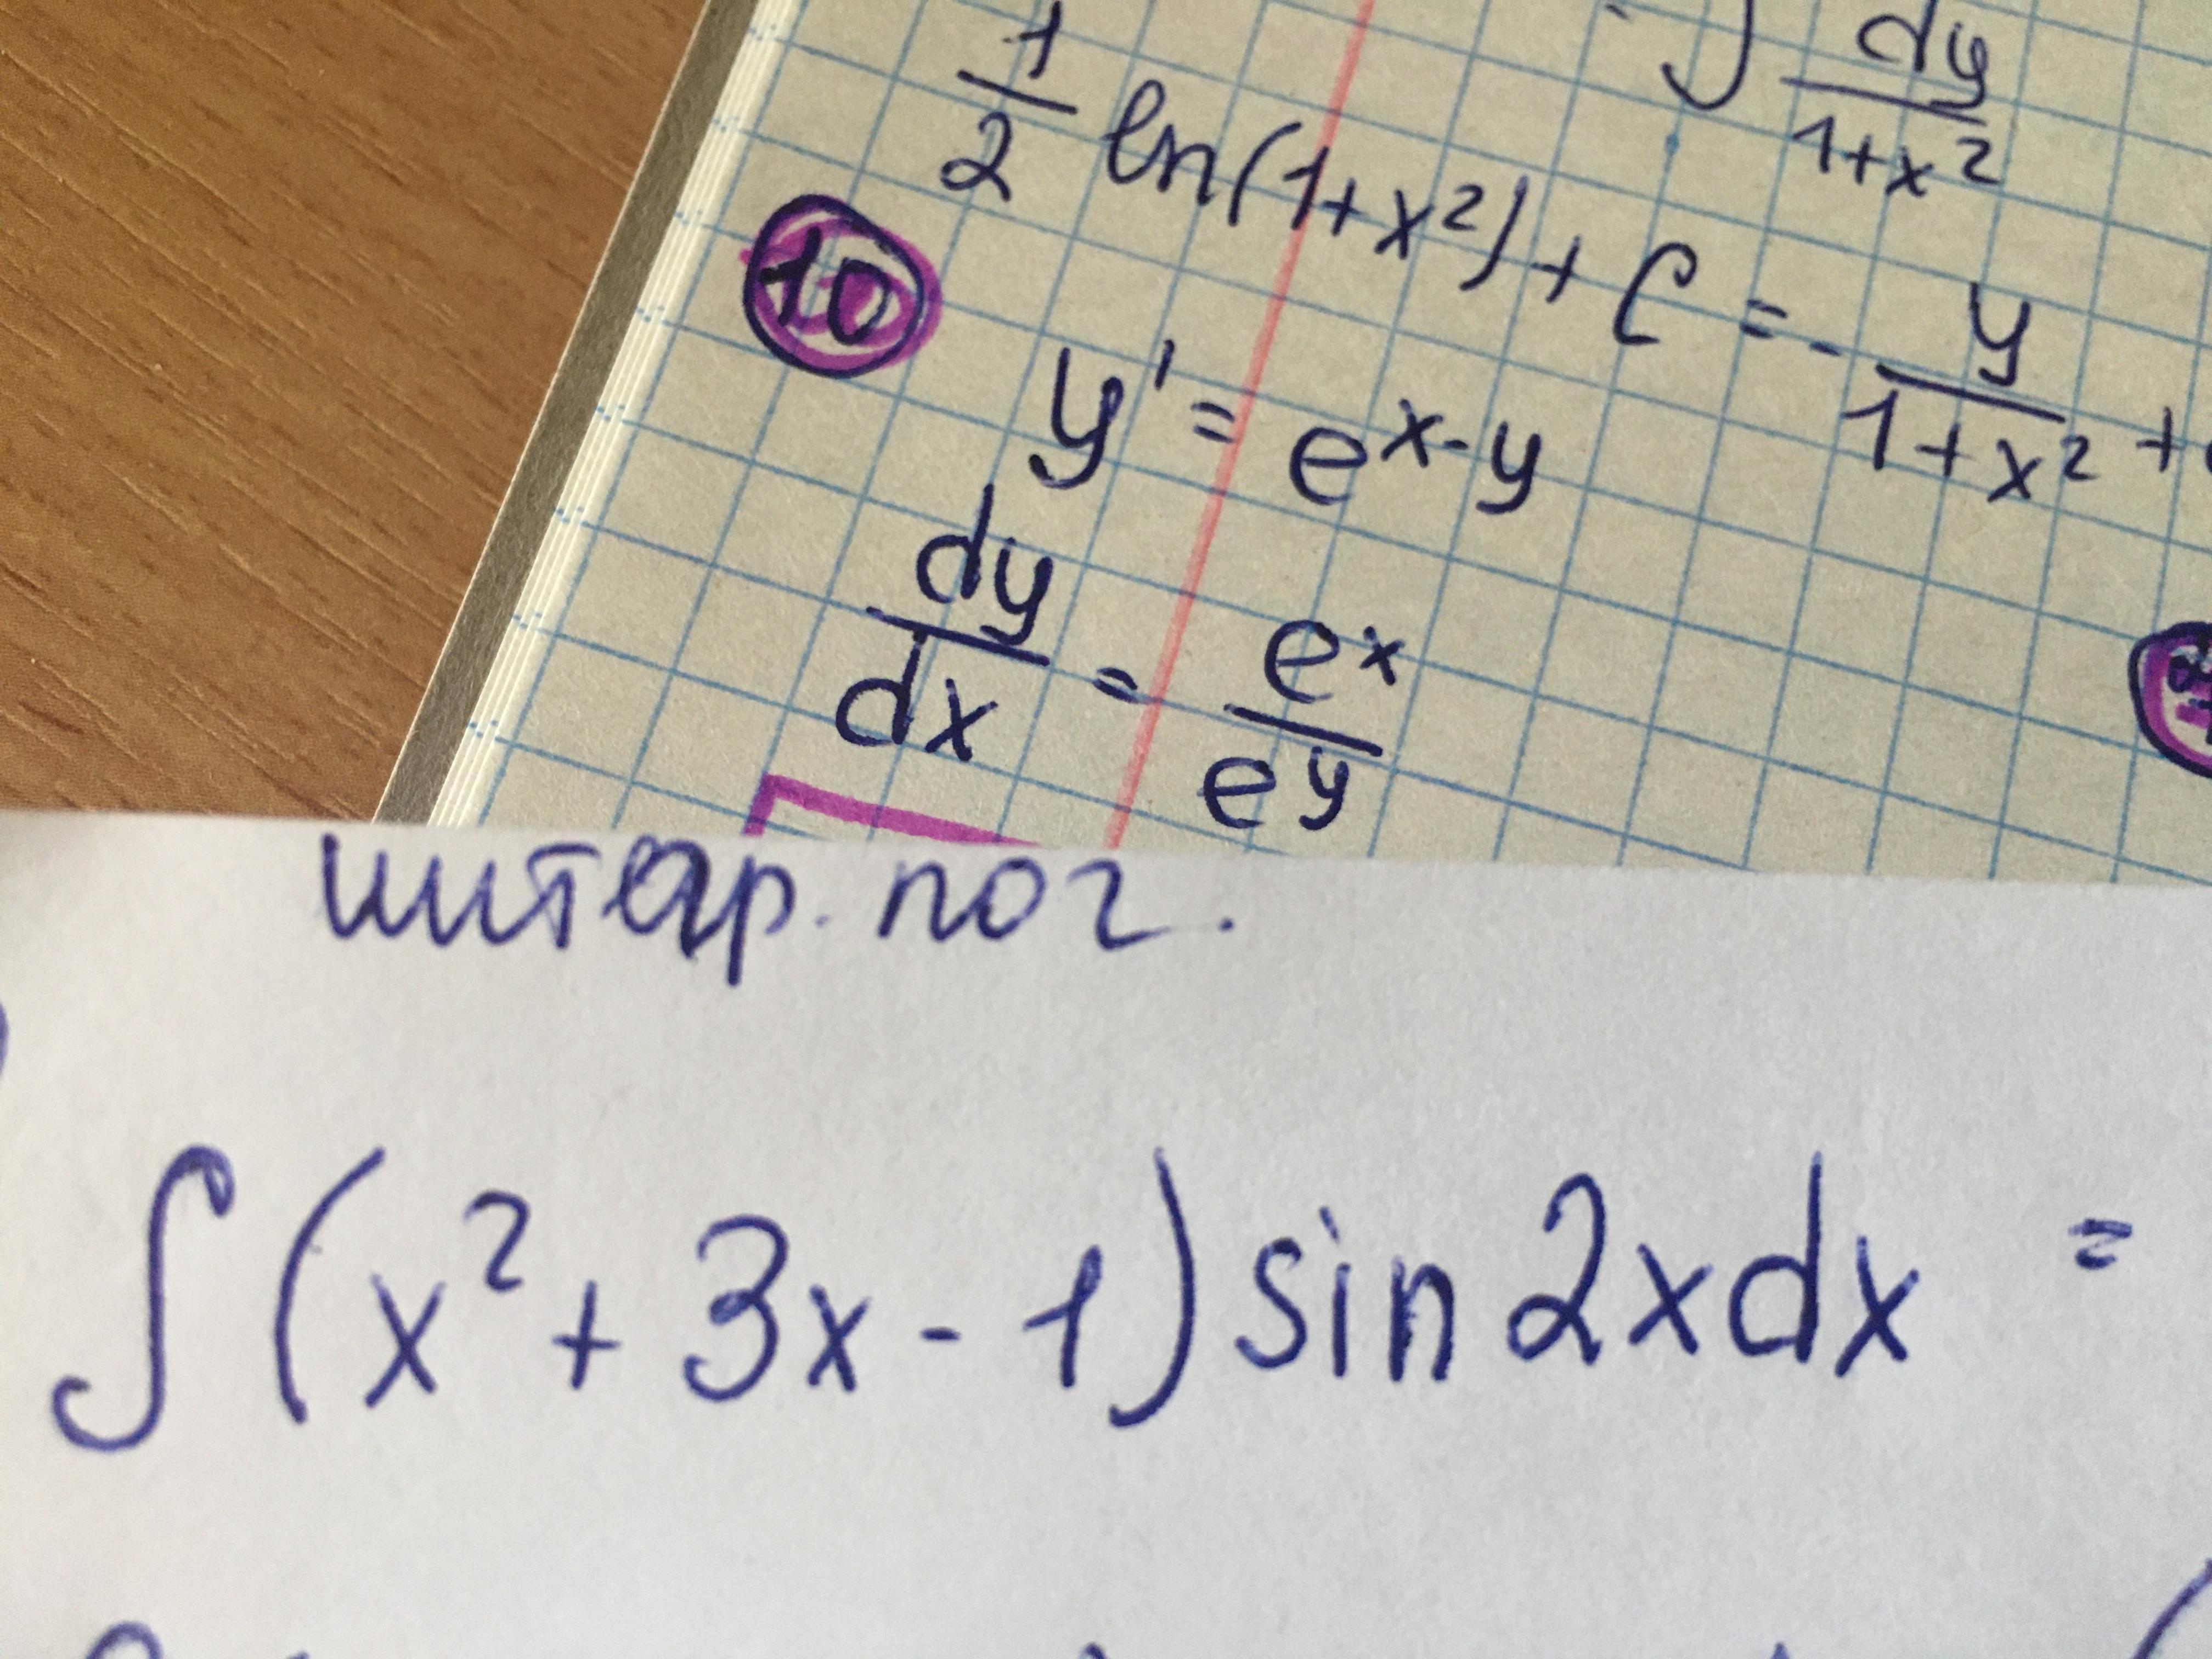 ∫ dy/(1+x²)
1/2 ln(1+x²) + C = - y/(1+x²) +
10
y' = e^(x-y)
dy/dx = e^x/e^y
∫ (x² + 3x - 1) sin 2x dx =